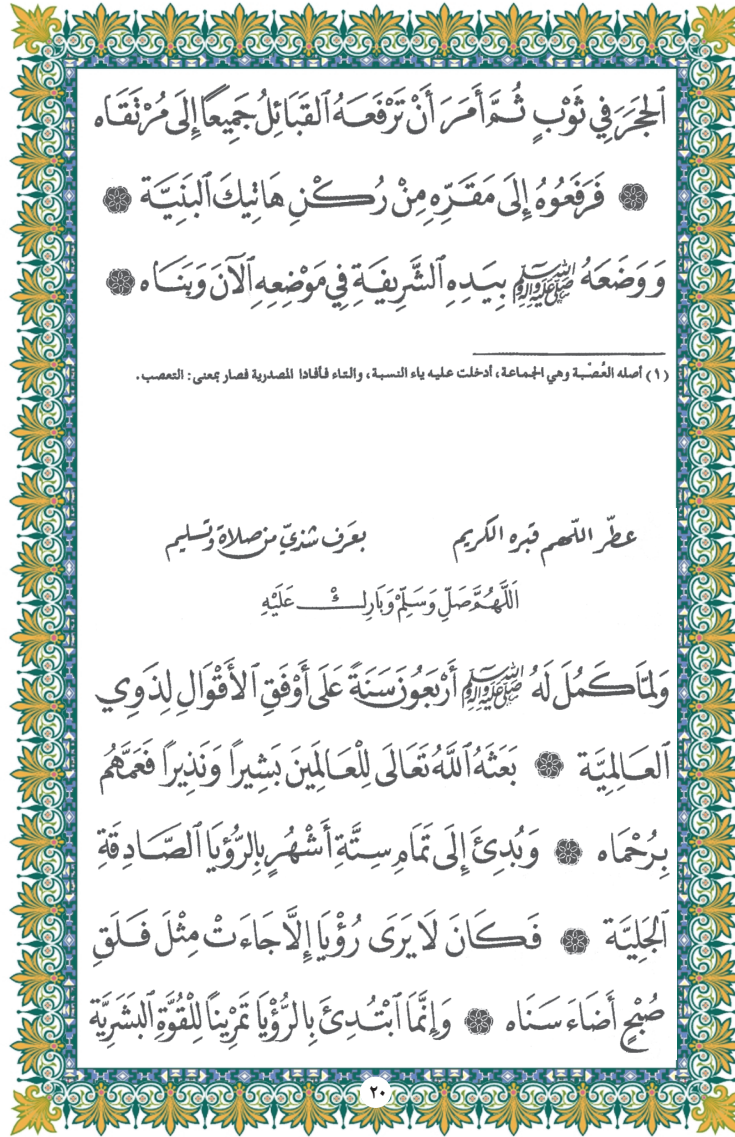 ٱلحَجَرَ فِي ثَوْبٍ ثُمَّ أَمَرَ أَنْ تَرْفَعَهُ ٱلقَبَائِلُ جَمِيعاً إِلَى مُرْتَقَاه
۞ فَرَفَعُوهُ إِلَى مَقَرِّهِ مِنْ رُكْنِ هَاتِيكَ ٱلبَنِيَّة ۞
وَوَضَعَهُ ﷺ بِيَدِهِ ٱلشَّرِيفَةِ فِي مَوْضِعِهِ ٱلآنَ وَبَنَاه ۞
(١) أصله العُصْبة وهي الجماعة، أدخلت عليه ياء النسبة، والتاء فأفادا المصدرية فصار بمعنى: التعصب.
عطّر اللّهم قبره الكريم بعَرف شذيّ من صلاة وتسليم
اَللَّهُمَّ صَلِّ وَسَلِّمْ وَبَارِكْ عَلَيْهِ
وَلمَّا كَمُلَ لَهُ ﷺ أَرْبَعُونَ سَنَةً عَلَى أَوْفَقِ ٱلأَقْوَالِ لِذَوِي
ٱلعَالِمِيَّة ۞ بَعَثَهُ ٱللَّهُ تَعَالَى لِلْعَالَمِينَ بَشِيراً وَنَذِيراً فَعَمَّهُمْ
بِرُحْمَاه ۞ وَبُدِئَ إِلَى تَمَامِ سِتَّةِ أَشْهُرٍ بِالرُّؤيَا ٱلصَّادِقَةِ
ٱلجَلِيَّة ۞ فَكَانَ لَا يَرَى رُؤْيَا إِلَّا جَاءَتْ مِثْلَ فَلَقِ
صُبْحٍ أَضَاءَ سَنَاه ۞ وَإِنَّمَا ٱبْتُدِئَ بِالرُّؤْيَا تَمْرِيناً لِلْقُوَّةِ ٱلبَشَرِيَّة
٢٠